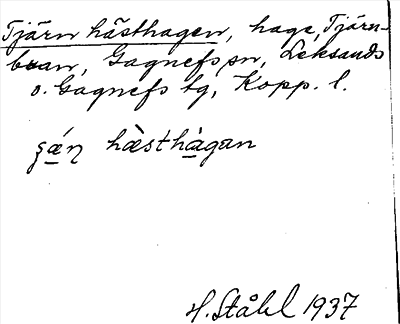 Tjärn hästhagen, hage, Tjärn-
bran, Gagnefs sn, Leksands
o. Gagnefs tg, Kopp. l.
ʂǽɳ hæ̀sthàgan
H. Ståhl 1937